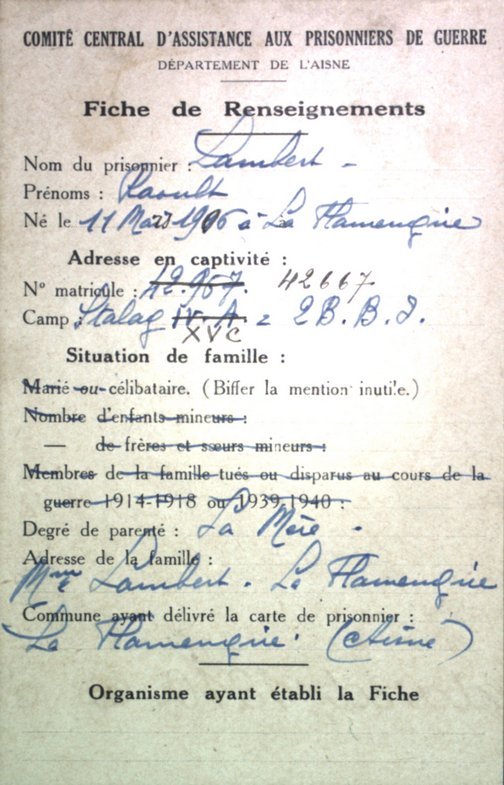 COMITÉ CENTRAL D'ASSISTANCE AUX PRISONNIERS DE GUERRE
DÉPARTEMENT DE L'AISNE
Fiche de Renseignements
Nom du prisonnier : Lambert -
Prénoms : Raoult
Né le 11 Mars 1906 à La Flamengrie
Adresse en captivité :
N° matricule : 42.967. 42667
Camp : Stalag IV.A = 2B.B.I.
XVC
Situation de famille :
Marié ou célibataire. (Biffer la mention inutile.)
Nombre d'enfants mineurs :
— de frères et sœurs mineurs :
Membres de la famille tués ou disparus au cours de la
guerre 1914-1918 ou 1939-1940 :
Degré de parenté : La Mère -
Adresse de la famille :
Mme Lambert. La Flamengrie
Commune ayant délivré la carte de prisonnier :
La Flamengrie. (Aisne)
Organisme ayant établi la Fiche